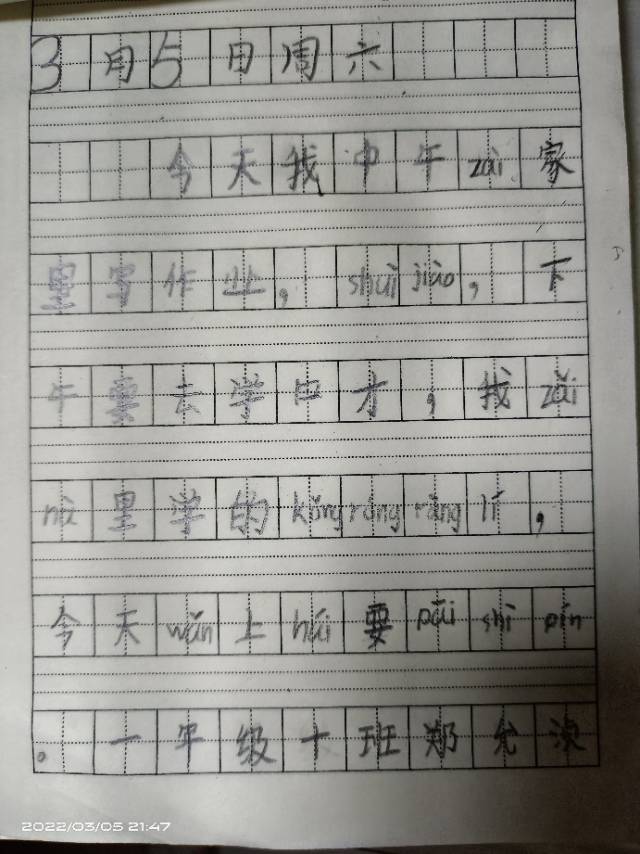 3月5日周六
今天我中午zài家
里写作业，shuì jiào，下
午要去学口才，我zǎi
nà里学的kǒng róng ràng lí，
今天wǎn上hái要pāi shì pín
。一年级十班郑允
2022/03/05 21:47